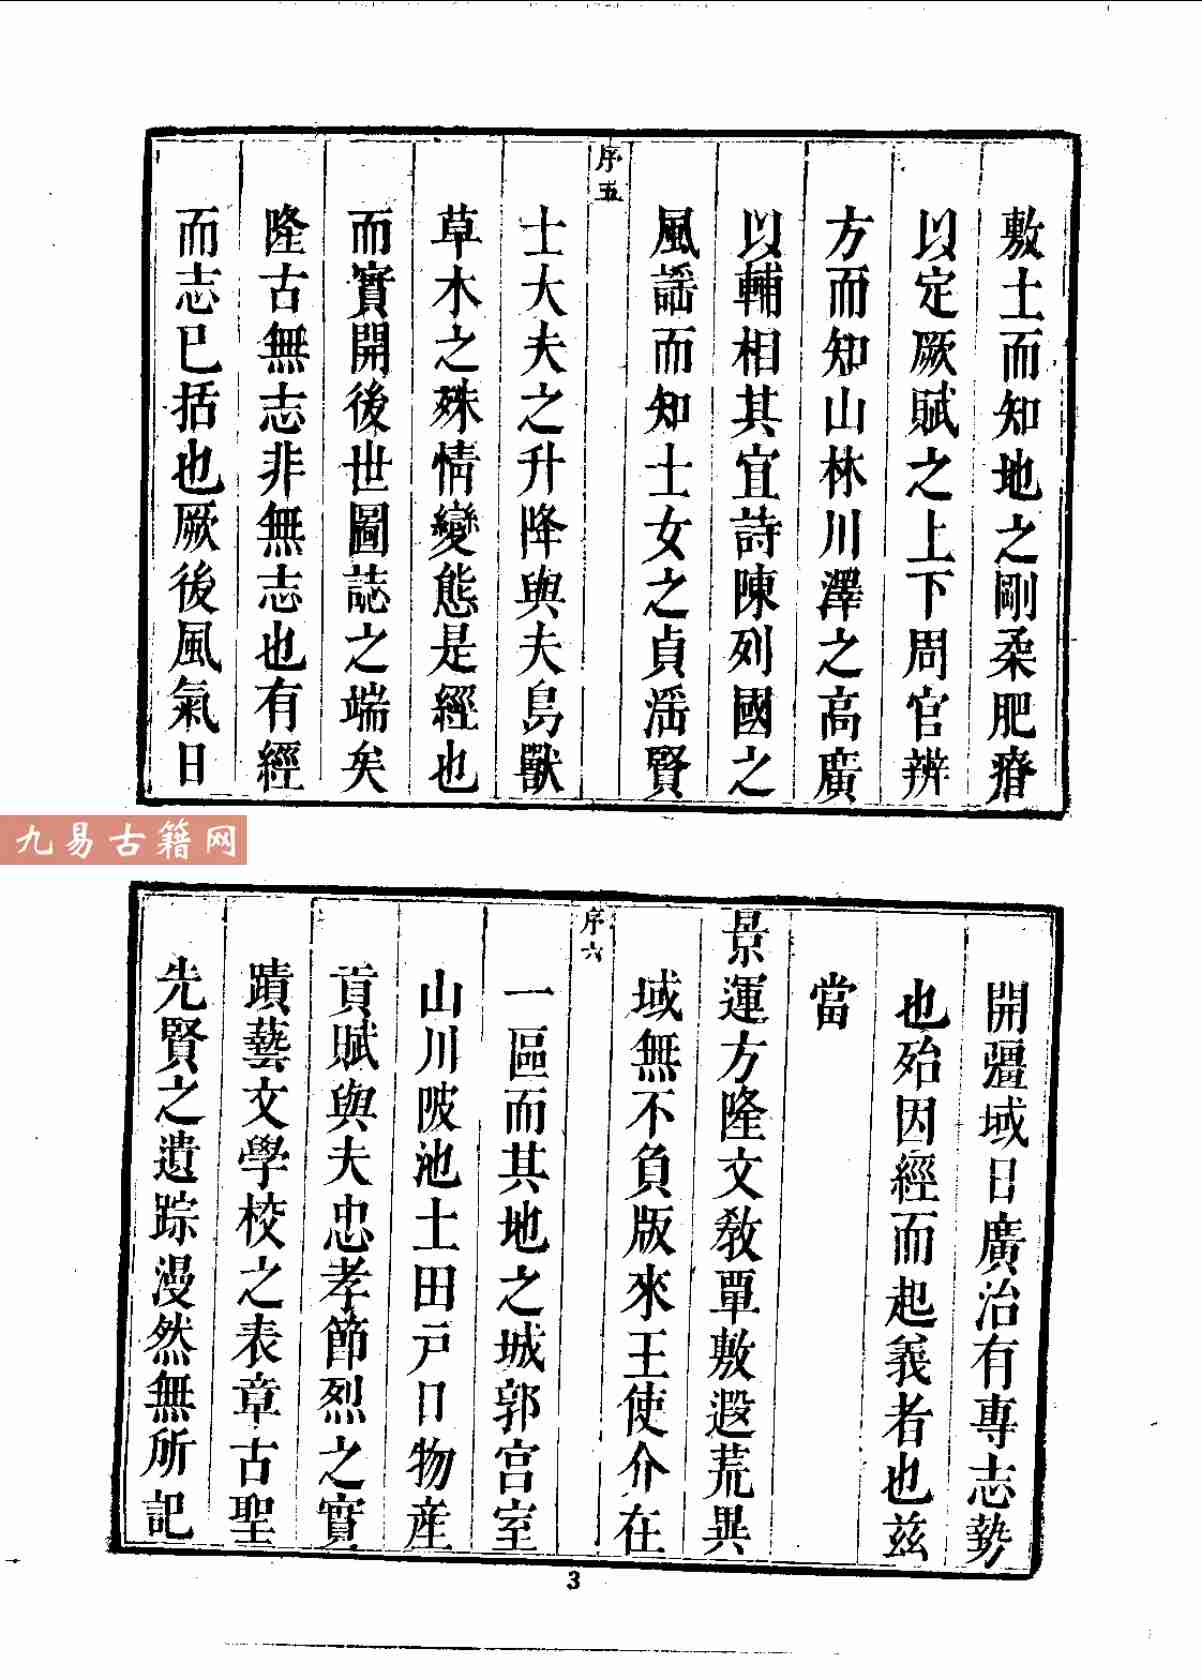 敷土而知地之剛柔肥瘠
以定厥賦之上下周官辨
方而知山林川澤之高廣
以輔相其宜詩陳列國之
風謡而知士女之貞滛賢
序五
士大夫之升降與夫鳥獸
草木之殊情變態是經也
而實開後世圖誌之端矣
隆古無志非無志也有經
而志已括也厥後風氣日
九易古籍网
開疆域日廣治有專志勢
也殆因經而起義者也兹
當
景運方隆文教覃敷遐荒異
域無不負版來王使介在
序六
一區而其地之城郭宫室
山川陂池土田戸口物産
貢賦與夫忠孝節烈之實
蹟藝文學校之表章古聖
先賢之遺踪漫然無所記
3